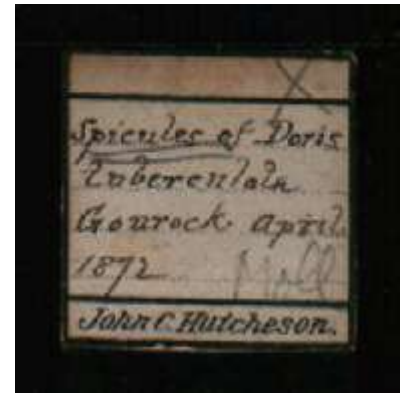 X
Spicules of Doris
tuberculata
Gourock. April
1872 Moll
John C. Hutcheson.